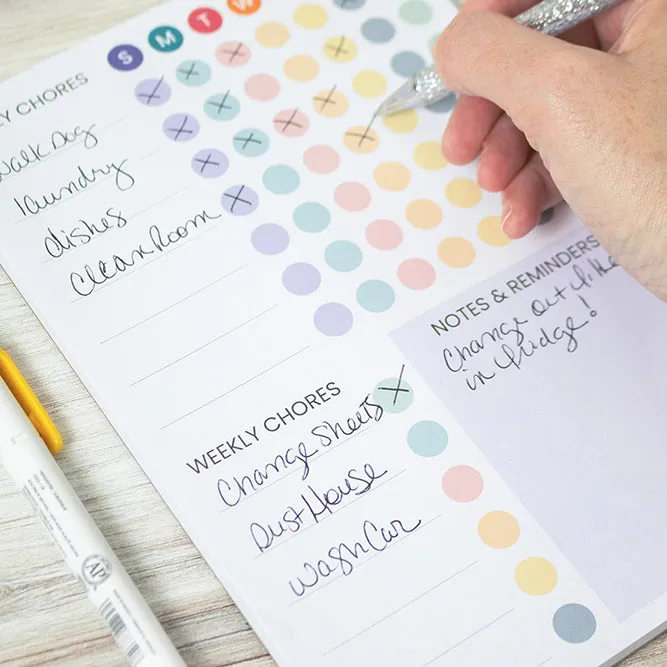 S M T W
LY CHORES
Walk Dog
laundry
dishes
Clean Room
NOTES & REMINDERS
Change out
in fridge!
WEEKLY CHORES
Change Sheets
Dust House
Wash Car
AP